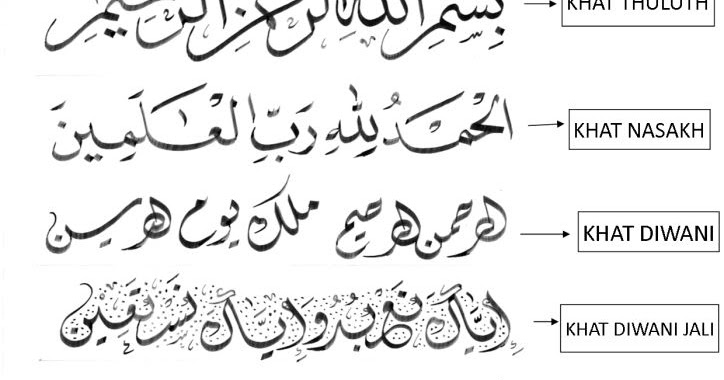 بسم الله الرحمن الرحيم
KHAT THULUTH
الْحَمْدُ لِلّٰهِ رَبِّ الْعٰلَمِينَ
KHAT NASAKH
الرحمن الرحيم ملك يوم الدين
KHAT DIWANI
إِيَّاكَ نَعْبُدُ وَإِيَّاكَ نَسْتَعِينُ
KHAT DIWANI JALI